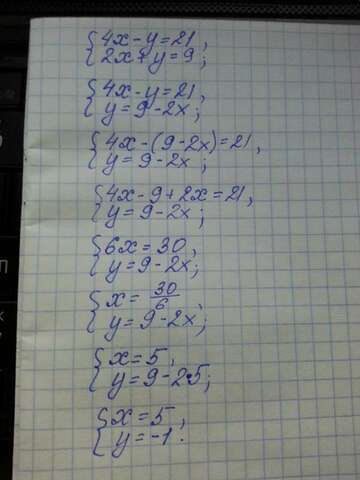 {4x-y=21,
{2x+y=9;
{4x-y=21,
{y=9-2x;
{4x-(9-2x)=21,
{y=9-2x;
{4x-9+2x=21,
{y=9-2x;
{6x=30,
{y=9-2x;
{x=30/6,
{y=9-2x;
{x=5,
{y=9-2·5;
{x=5,
{y=-1.